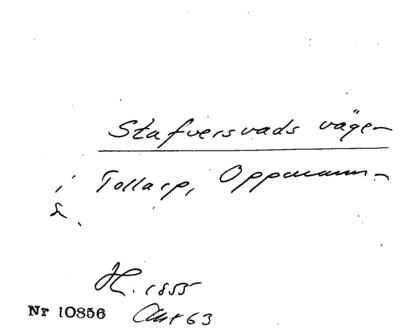 Stafversvads vägen
i Tollarp, Oppmanna
s.
H. 1855
Akt 63
Nr 10856